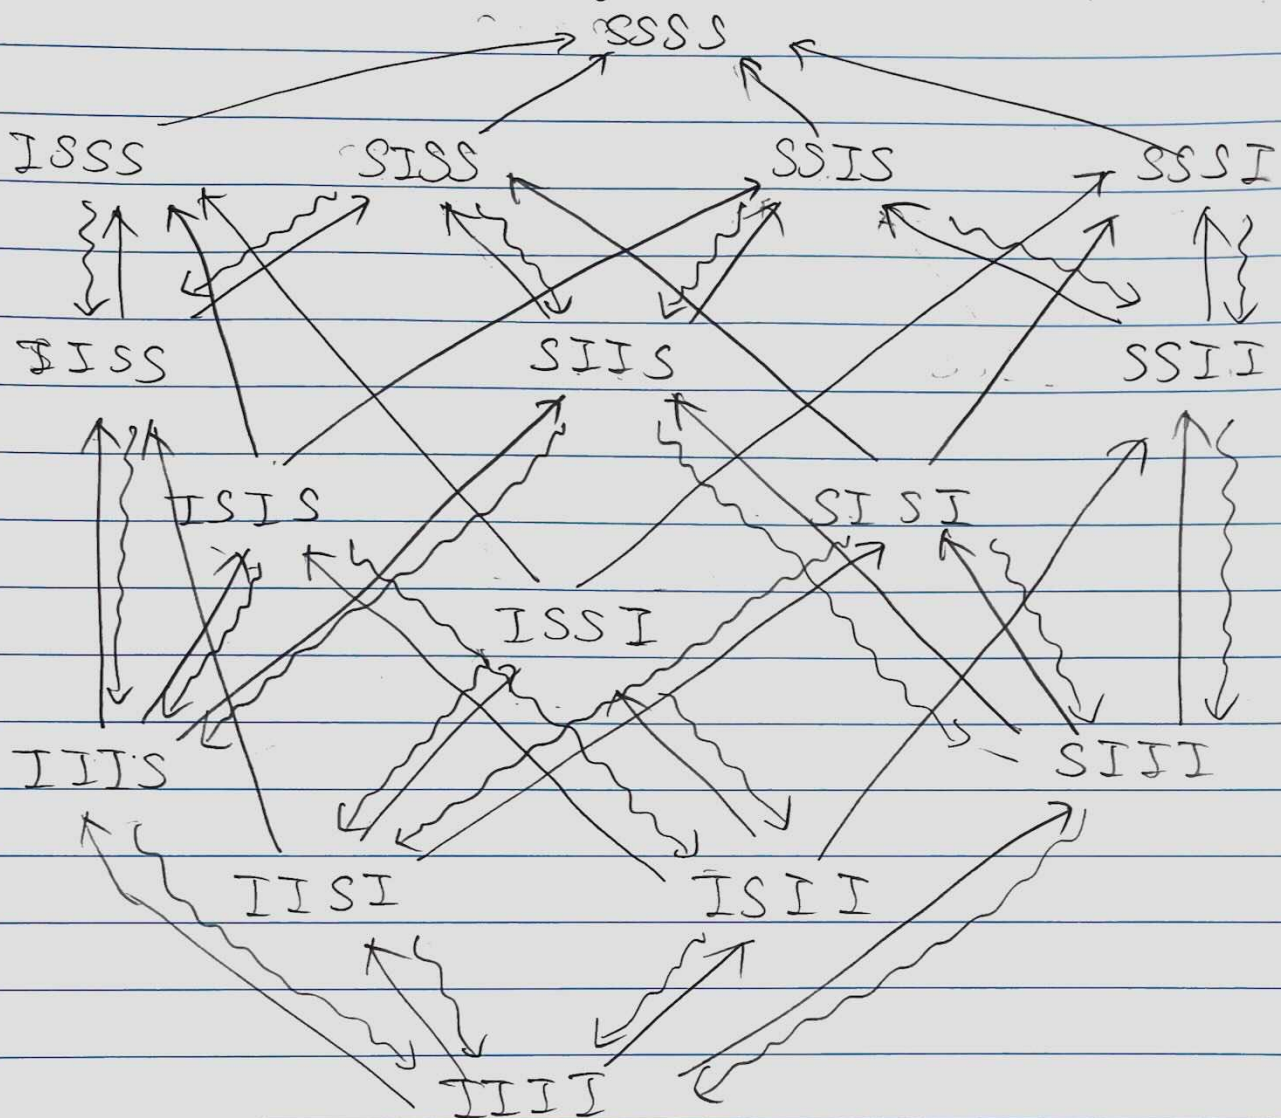 SSSS
ISSS SISS SSIS SSSI
IISS SIIS SSII
ISIS SISI
ISSI
IIIS SIII
IISI ISII
IIII